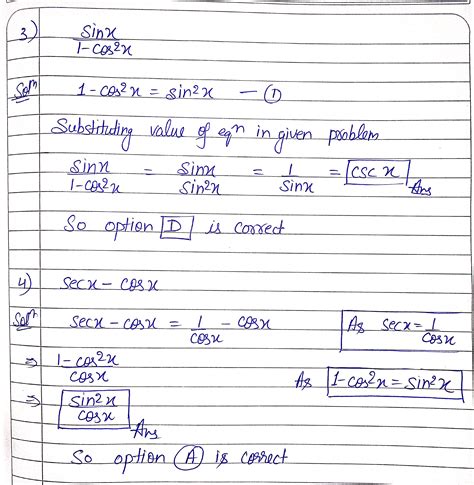 3) sinx / 1-cos²x
Solⁿ 1-cos²x = sin²x — ①
Substituting value of eqⁿ in given problem
sinx / 1-cos²x = sinx / sin²x = 1 / sinx = csc x Ans
So option D is correct
4) secx - cosx
Solⁿ secx - cosx = 1 / cosx - cosx As secx = 1 / cosx
⇒ 1-cos²x / cosx
As 1-cos²x = sin²x
⇒ sin²x / cosx Ans
So option A is correct